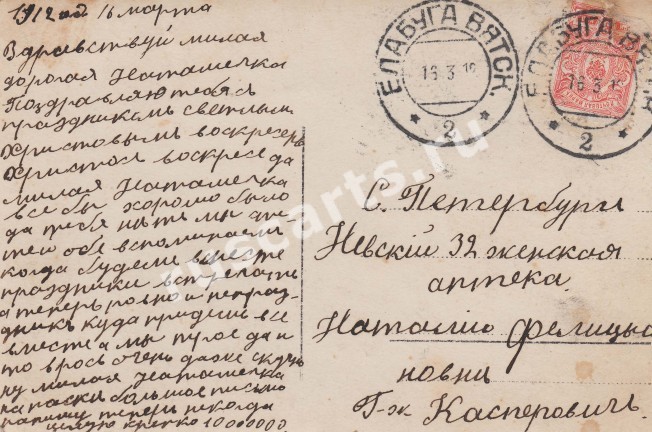 1912 год 16 марта
Здравствуй милая
дорогая Наташечка
Поздравляю тебя съ
праздникомъ светлым
Христовымъ воскресень
Христос воскресе да
милая Наташечка
все бы хорошо было
да тебя нѣтъ мы
тей обе вспоминаем
когда будем вместе
праздники встречать
а теперь ровно и не праз-
дникъ куда придешь все
вместе а мы трое да и
то врось очень даже скучно
ну милая Наташечка
на пасхи большое письмо
напишу теперь некогда
целую крепко 10000000.
ЕЛАБУГА ВЯТСК.
16.3.12
2
ЕЛАБУГА ВЯТСК.
16.3.12
2
С. Петербургъ
Невскій 32 женская
аптека.
Наталию Фелицыа
новны
Г-ж Касперовичъ.
ruscarts.ru